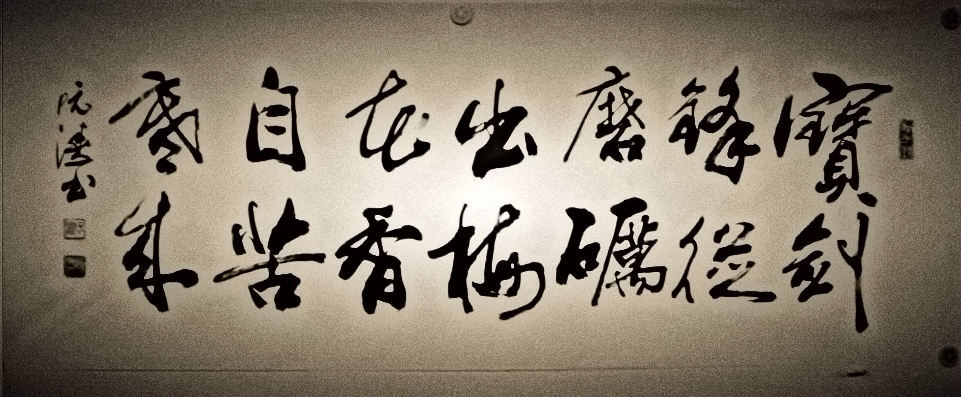 寶劍
鋒從
磨礪
出梅
花香
自苦
寒來
阮濤书